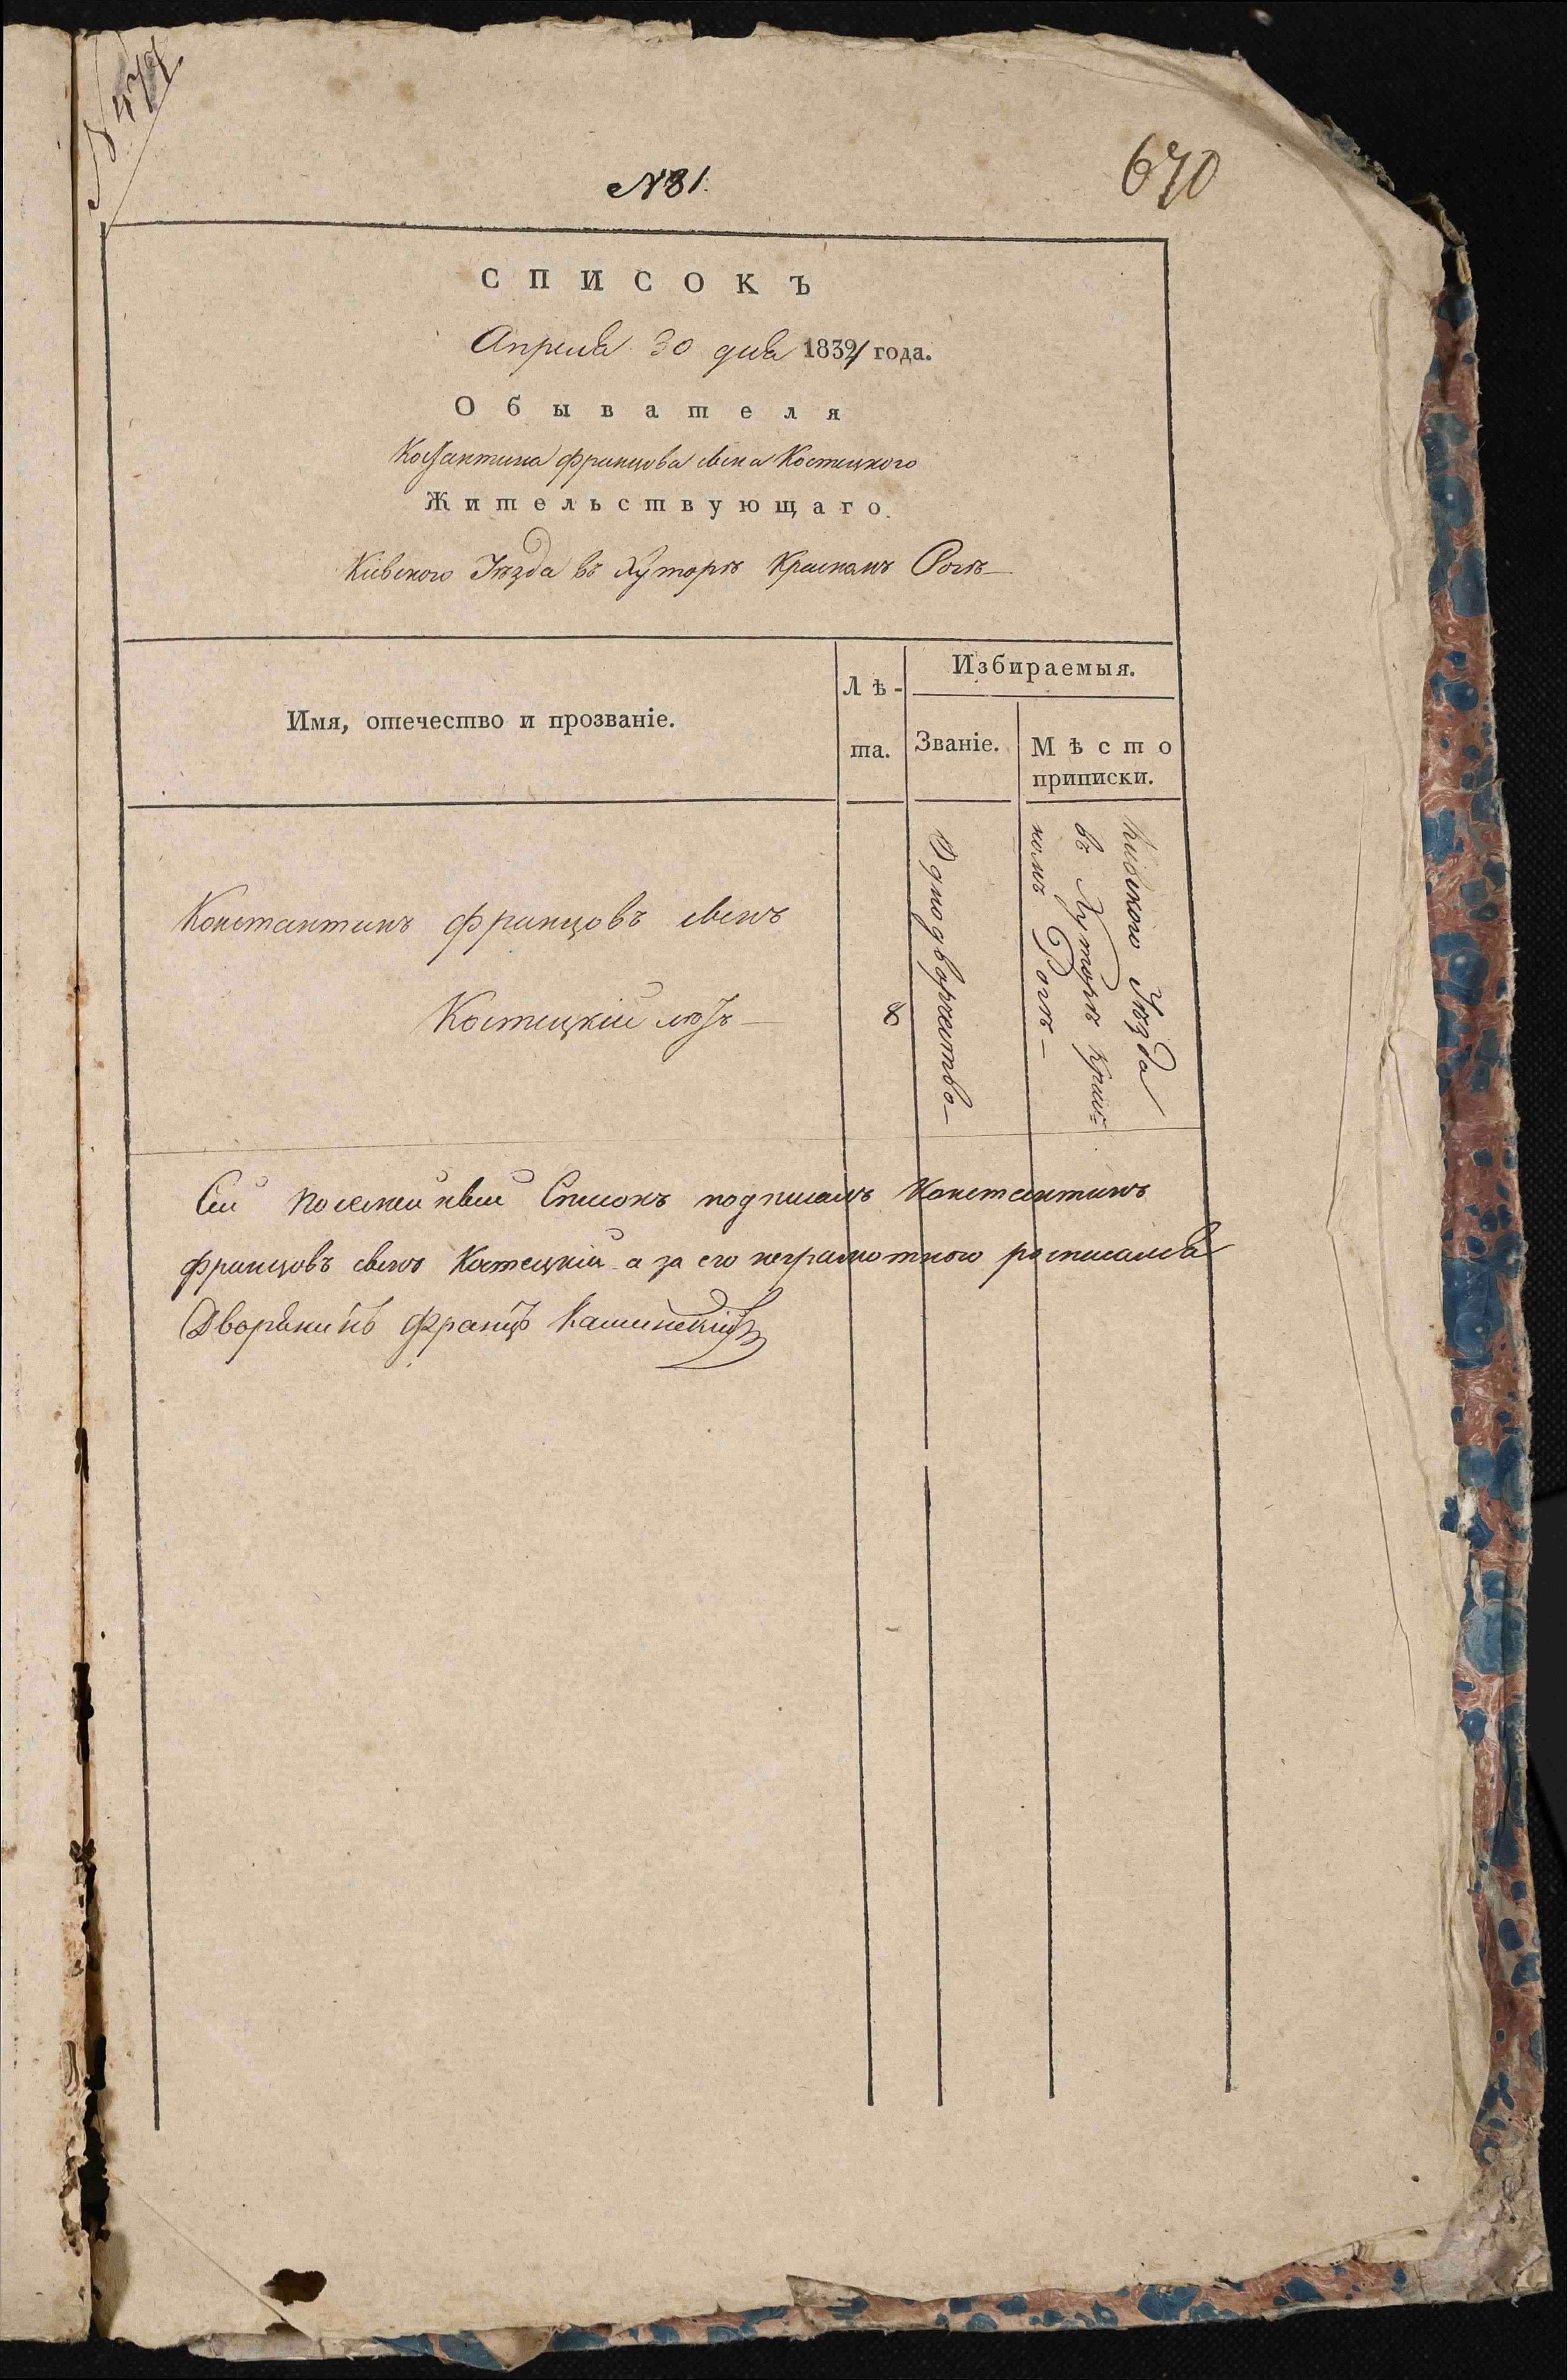 № 81.
670
СПИСОКЪ
Апреля 30 дня 1832/ года.
Обывателя
Константина Францова сына Костецкого
Жительствующаго.
Кіевского Уѣзда въ Хуторѣ Красномъ Рогѣ
Имя, отечество и прозваніе.
Лѣ-
та.
Избираемыя.
Званіе.
Мѣсто
приписки.
Константинъ Францовъ сынъ
Костецкій
8
Однодворчество
Кіевского Уѣзда
въ Хуторѣ Крас=
номъ Рогѣ
Сей посемейный Списокъ подписалъ Константинъ
Францовъ сынъ Костецкій а за его неграмотного росписался
Дворянинъ Францъ